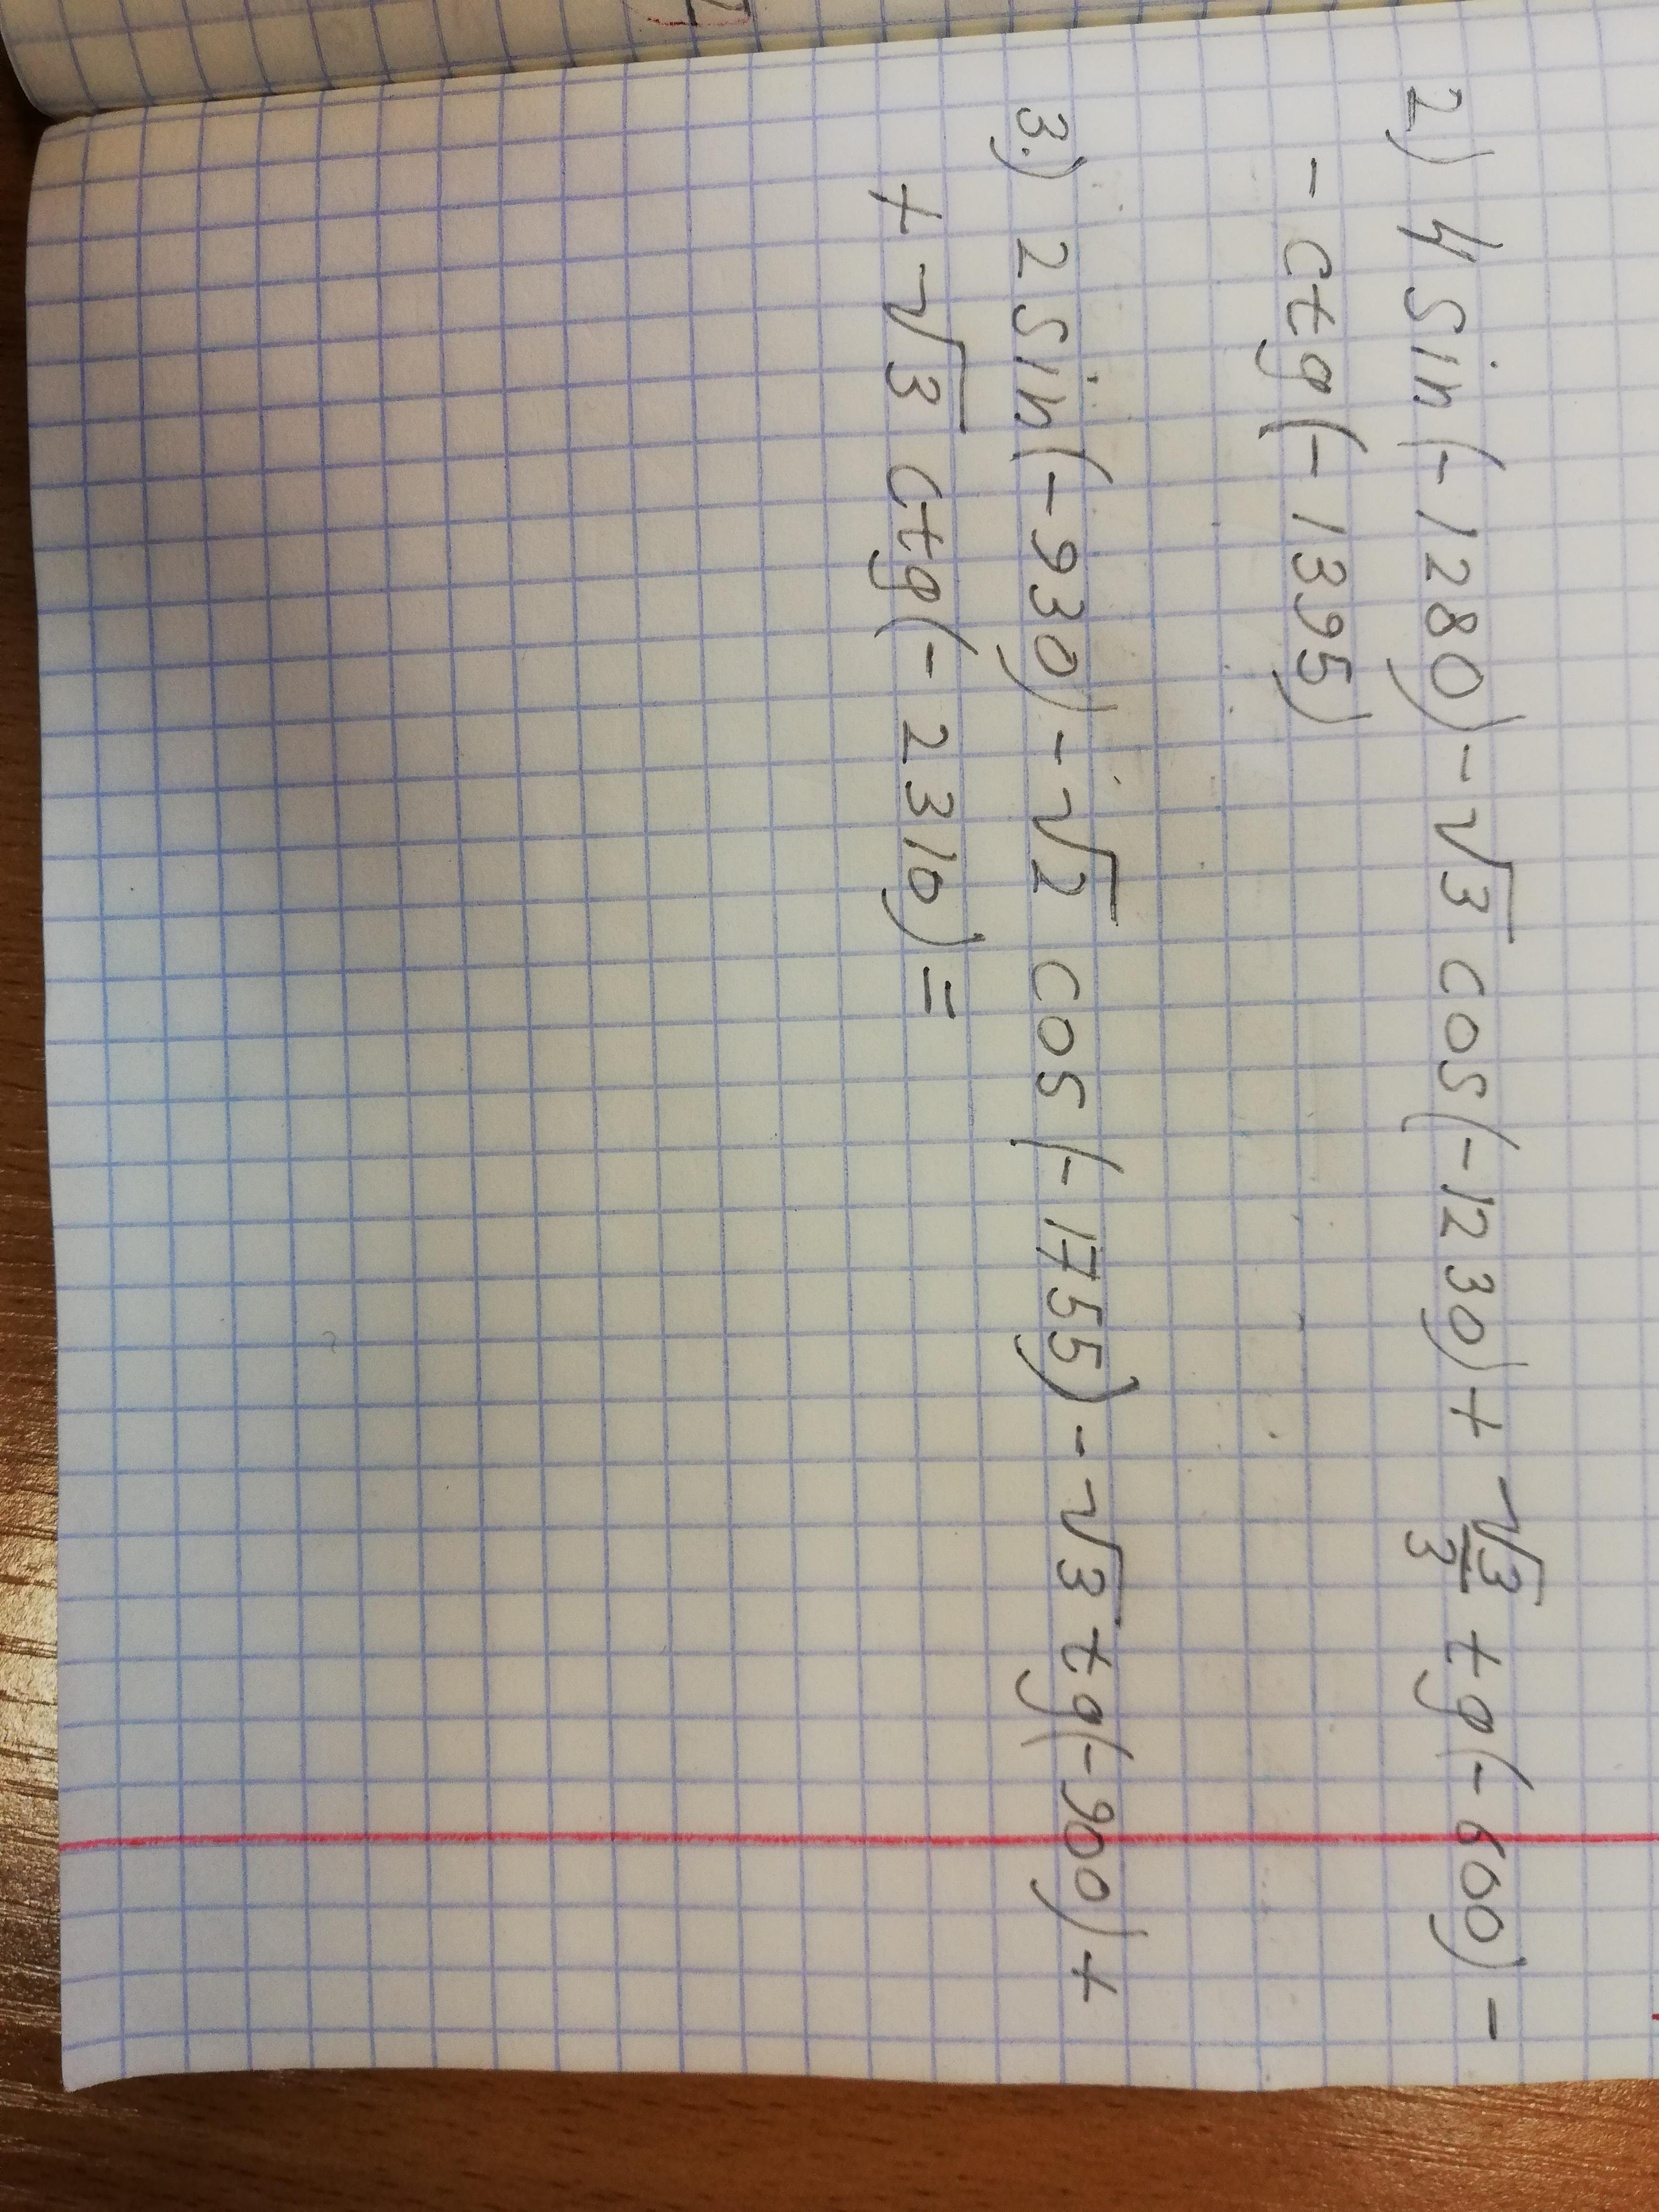 2) 4 sin(-1280) - √3 cos(-1230) + √3/3 tg(-600) -
- ctg(-1395)
3.) 2 sin(-930) - √2 cos(-1755) - √3 tg(-900) +
+ √3 ctg(-2310) =